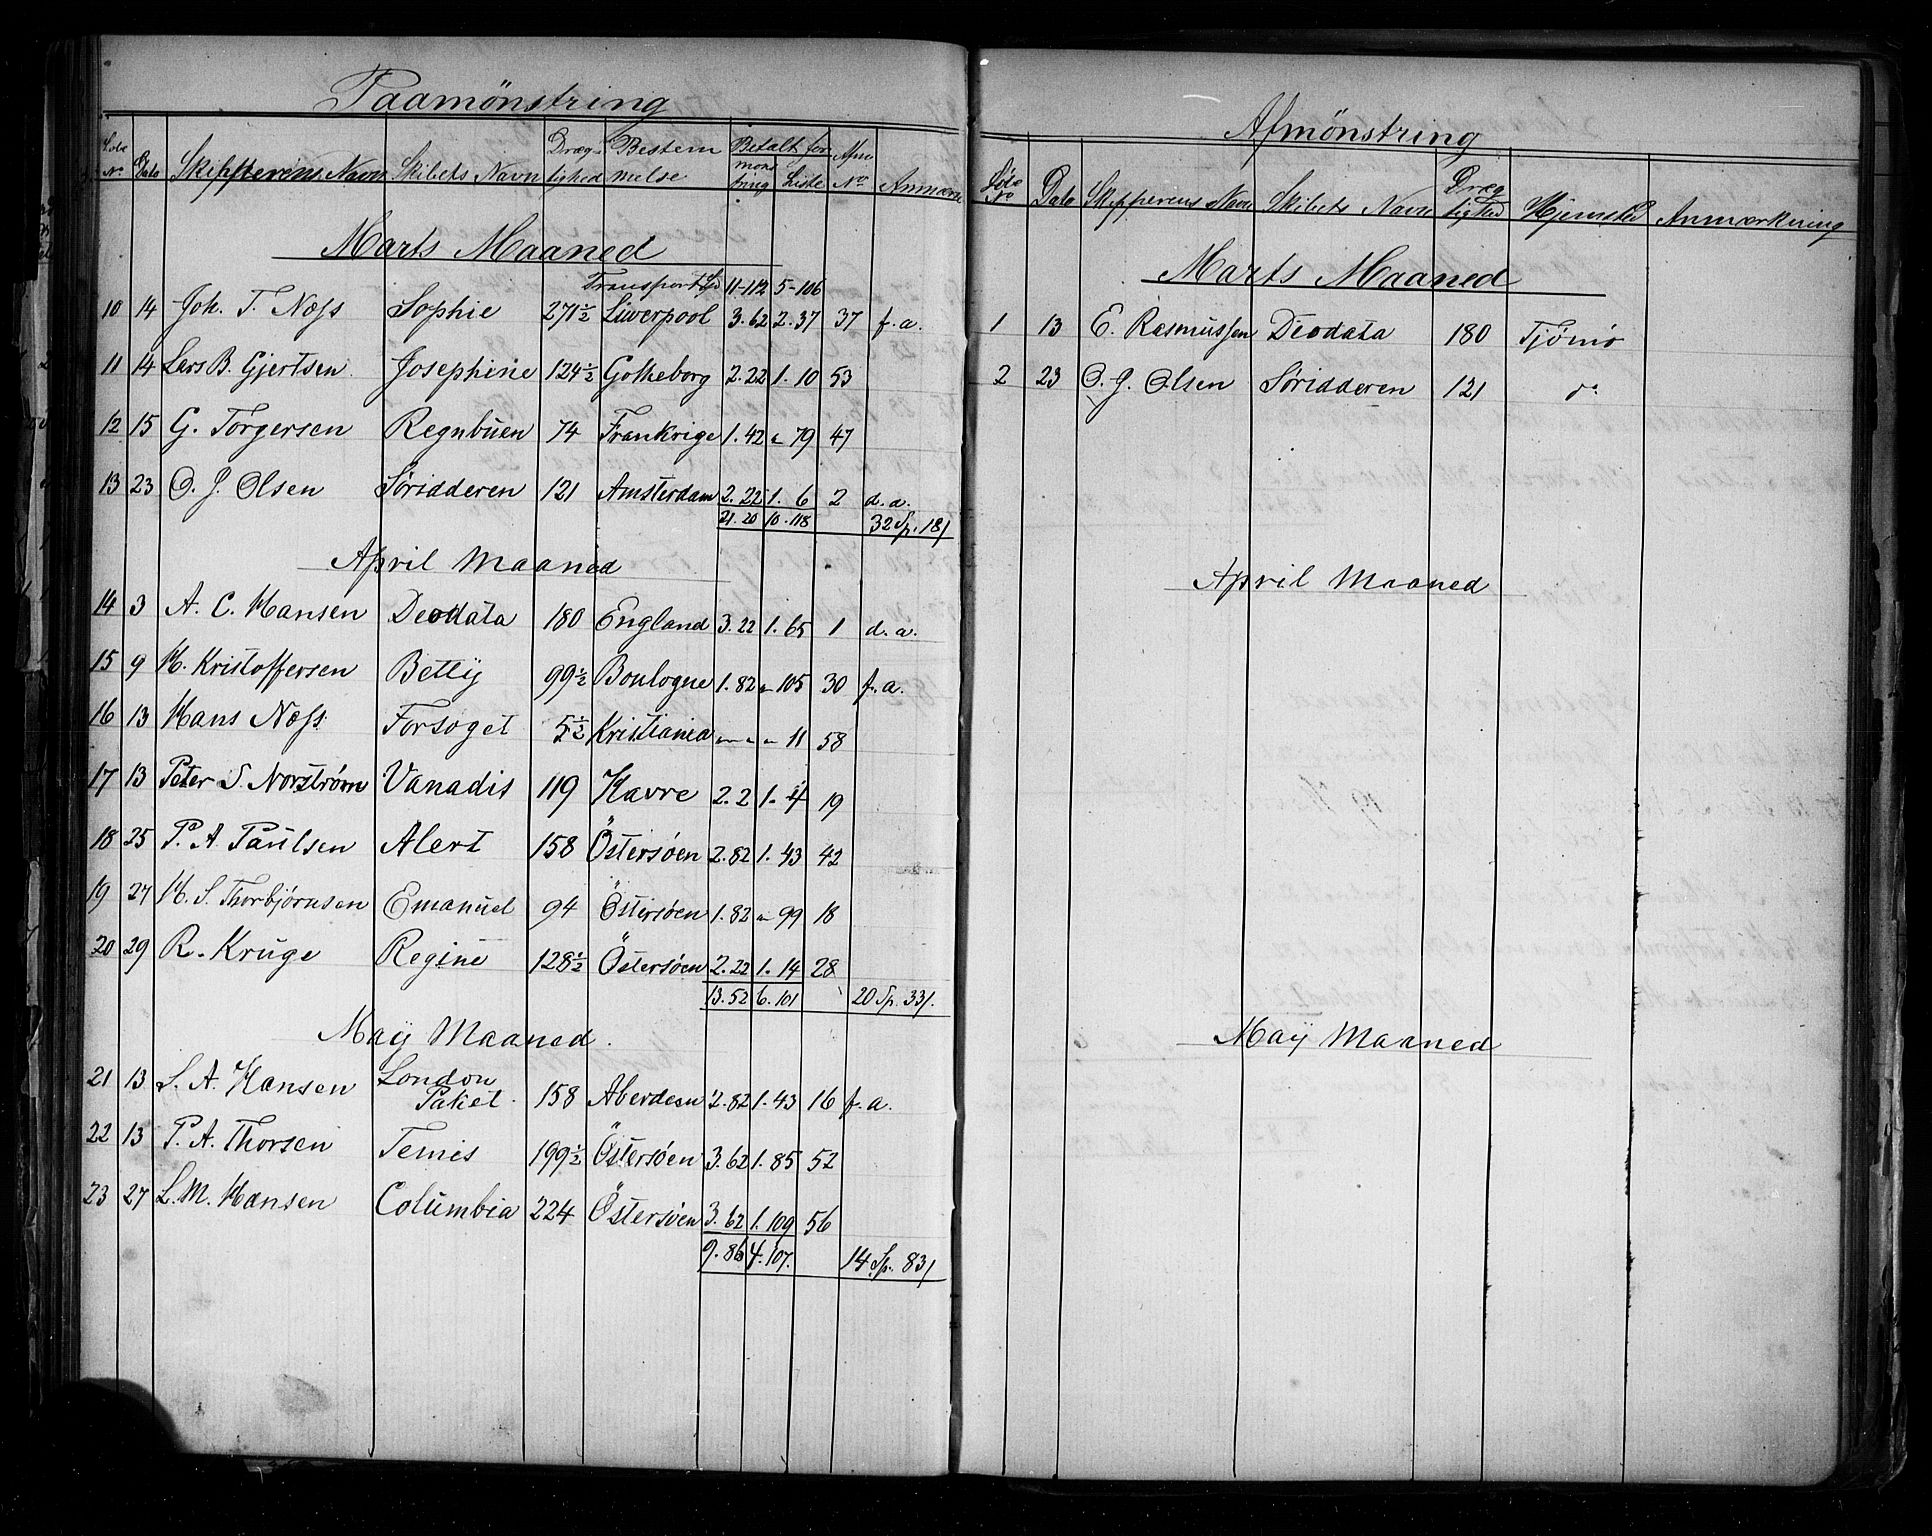 Paamönstring
Løbe No. Dato Skipperens Navn Skibets Navn Dræg-tighed Bestem melse Betalt for mønstring Liste Afm No. Anmærk
Marts Maaned
Transport Sp 11-112 5-106
10 14 Joh. T. Næss Sophie 271½ Liwerpool 3.62 2.37 37 f.a.
11 14 Lars B. Gjertsen Josephine 124½ Gotheborg 2.22 1.10 53
12 15 G. Torgersen Regnbuen 74 Frankrige 1.42 " 79 47
13 23 O. J. Olsen Søridderen 121 Amsterdam 2.22 1.6 2 d.a.
21.20 10.118 32 Sp. 18/
April Maaned
14 3 A. C. Hansen Deodata 180 England 3.22 1.65 1 d.a.
15 9 H. Kristoffersen Bettÿ 99½ Boulogne 1.82 " 105 30 f.a.
16 13 Hans Næss Forsøget 5½ Kristiania " " " 11 58
17 13 Peter S. Norstrøm Vanadis 119 Havre 2.2 1.4 19
18 25 P. A. Paulsen Alert 158 Östersøen 2.82 1.43 42
19 27 H. S. Thorbjørnsen Emanuel 94 Östersøen 1.82 " 99 18
20 29 R. Kruge Regine 128½ Östersøen 2.22 1.14 28
13.52 6.101 20 Sp. 33/.
Maÿ Maaned.
21 13 S. A. Hansen London Paket 158 Aberdeen 2.82 1.43 16 f.a.
22 13 P. A. Thorsen Temis 199½ Östersøen 3.62 1.85 52
23 27 L. M. Hansen Columbia 224 Östersøen 3.62 1.109 56
9.86 4.107. 14 Sp. 83/
Afmönstring
Løbe No Dato Skipperens Navn Skibets Navn Dræg tighed Hjemsted Anmærkning
Marts Maaned
1 13 E. Rasmussen Deodata 180 Tjømø
2 23 O. J. Olsen Søridderen 121 do
April Maaned
Maÿ Maaned